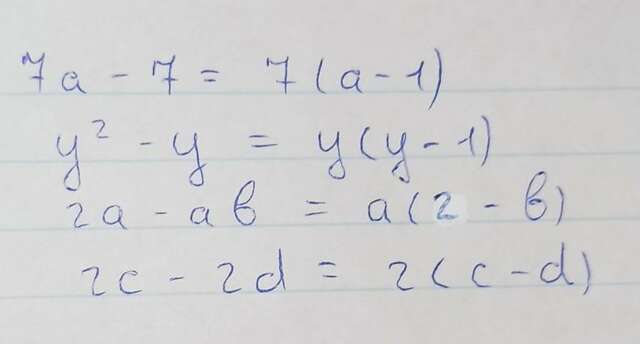 7a - 7 = 7(a-1)
y² - y = y(y-1)
2a - ab = a(2 - b)
2c - 2d = 2(c-d)